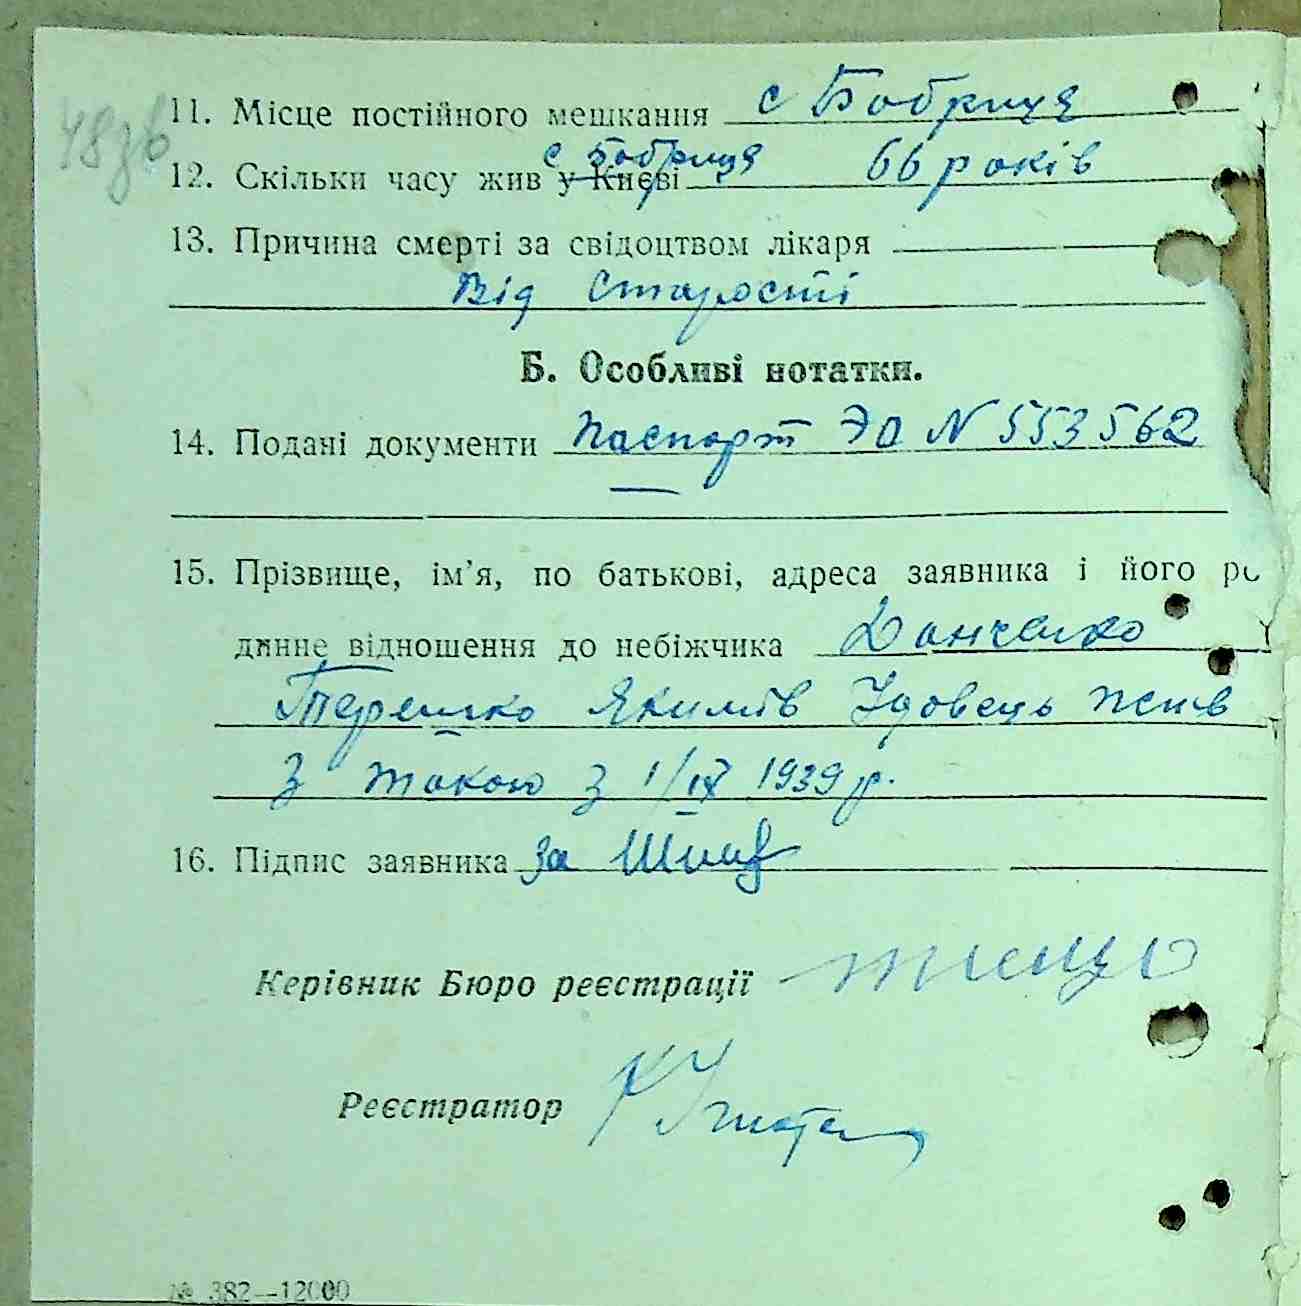 48зв
11. Місце постійного мешкання с Бобриця
12. Скільки часу жив у Києві с Бобриця 66 років
13. Причина смерті за свідоцтвом лікаря
Від Старості
Б. Особливі нотатки.
14. Подані документи Паспорт ЭО N 553562
15. Прізвище, ім'я, по батькові, адреса заявника і його ро
динне відношення до небіжчика Донченко
Терешко Якимів Удовець жив
з такою з 1/IX 1939 р.
16. Підпис заявника за
Керівник Бюро реєстрації
Реєстратор
№ 382—12000